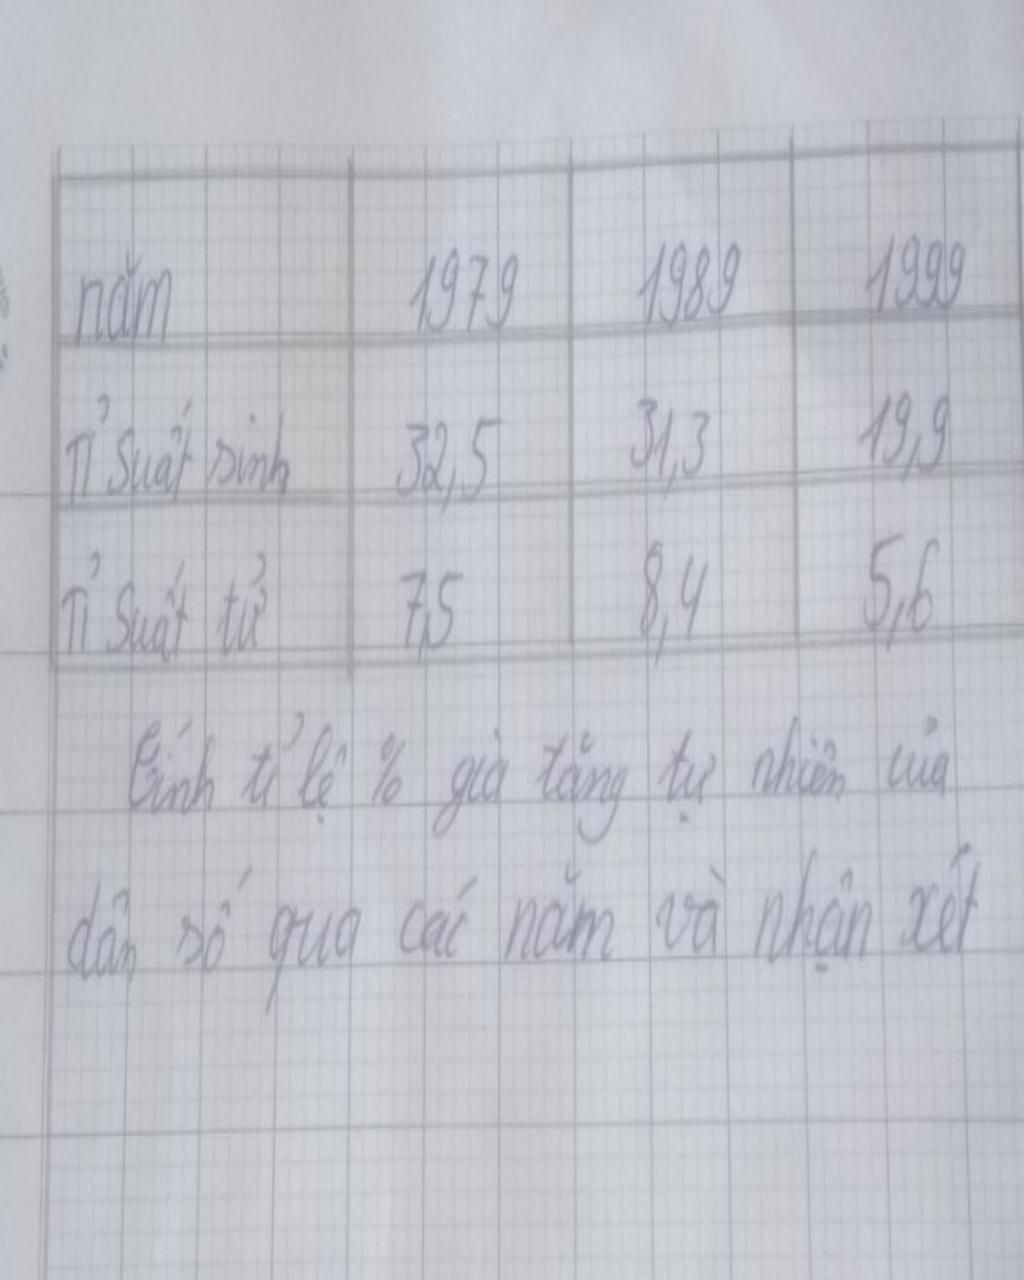 năm 1979 1989 1999
Tỉ suất sinh 32,5 31,3 19,9
Tỉ suất tử 7,5 8,4 5,6
Tính tỉ lệ % gia tăng tự nhiên của
dân số qua các năm và nhận xét